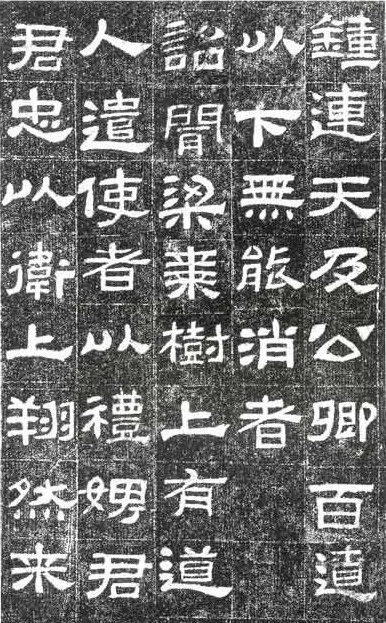 鍾連天及公卿百遼
以下無能消者
詔聞梁棗樹上有道
人遣使者以禮娉君
君忠以衛上翔然来